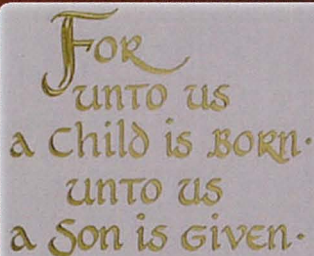 For
unto us
a Child is Born·
unto us
a Son is Given·